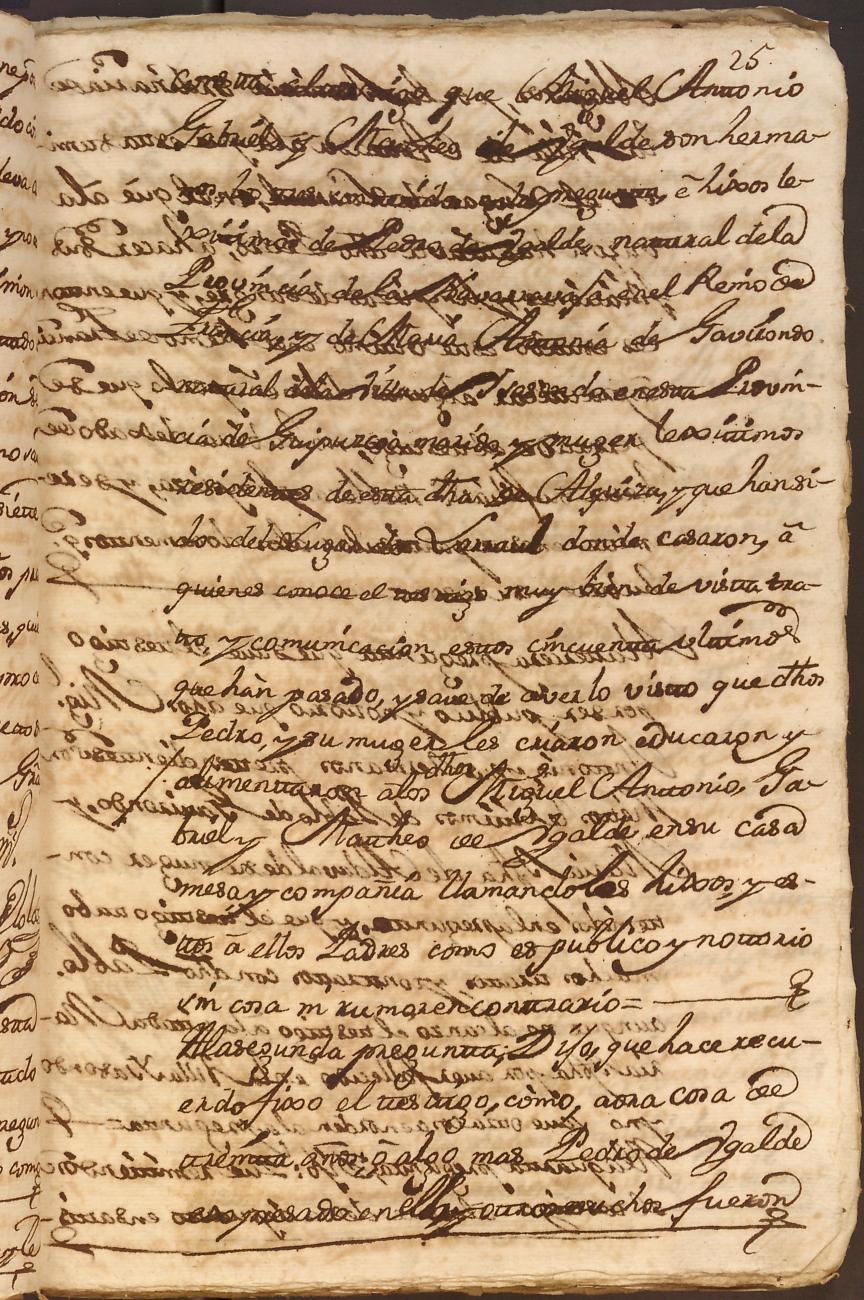 25
que, Miguel Antonio
Gabriel y Matheo de Ygalde son herma-
nos pregunta, é hixos le-
xitimos de Pedro de Ygalde, natural dela
Provincia de la Navarra en el Reino de
Francia, y de Maria Antonia de Gaviriondo
natural dela Villa de en esta Provin-
cia de Guipuzcoa marido y muger lexitimos
residentes de esta dha de Alquiza, y que han si-
do del Lugar de Larraul donde casaron, â
quienes conoce el testigo muy bien de vista tra-
to y comunicacion estos cincuenta ultimos
que hàn pasado, y save de averlo visto que dhos
Pedro, y su muger les criaron educaron y
alimentaron a los dhos Miguel Antonio, Ga-
briel y Matheo de Ygalde, en su casa
mesa y compañia llamandoles hixos, y es-
ttos â ellos Padres como es publico y nottorio
sin cosa ni rumor en contrario=
Alasegunda pregunta, Dijo, que hace recu-
erdo fixo el testigo, como, aora cosa de
treinta años ô algo mas Pedro de Ygalde
y otros muchos fueron